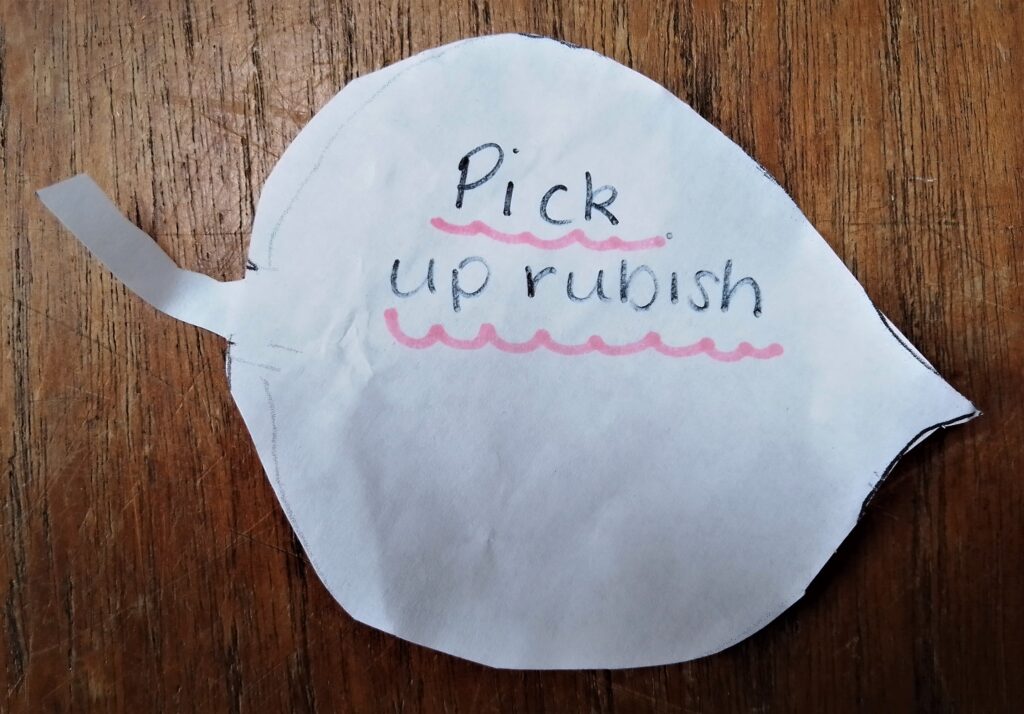 Pick
up rubish